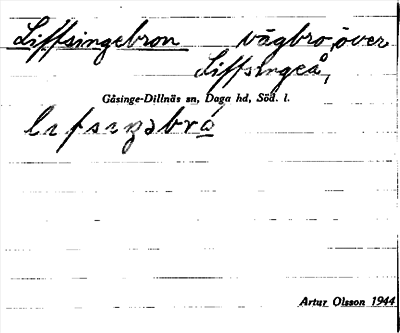 Liffsingebron vägbro över
Liffsingeå,
Gåsinge-Dillnäs sn, Daga hd, Söd. l.
lifsiŋəbrå
Artur Olsson 1944